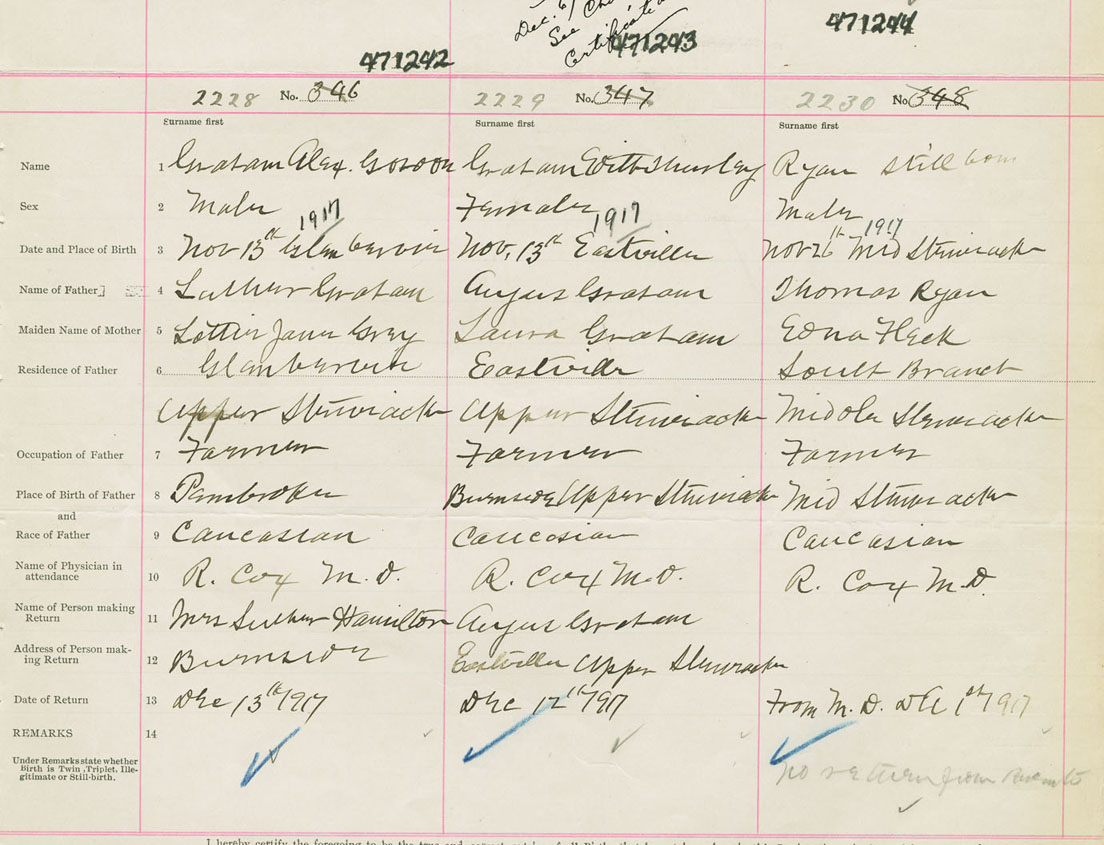 Dec. 6/
See
Certificate
471242 471243 471244
2228 No. 346 2229 No. 347 2230 No. 348
Surname first Surname first Surname first
Name 1 Graham Alex. Gordon Graham Edith Shirley Ryan Still born
Sex 2 Male Female Male
1917 1917 1917
Date and Place of Birth 3 Nov 13th Glenbervie Nov. 13th Eastville Nov 26th Mid Stewiacke
Name of Father 4 Luther Graham Angus Graham Thomas Ryan
Maiden Name of Mother 5 Lottie Jane Grey Laura Graham Edna Fleck
Residence of Father 6 Glenbervie Eastville South Branch
Upper Stewiacke Upper Stewiacke Middle Stewiacke
Occupation of Father 7 Farmer Farmer Farmer
Place of Birth of Father 8 Pembroke Burnside Upper Stewiacke Mid Stewiacke
and
Race of Father 9 Caucasian Caucasian Caucasian
Name of Physician in
attendance 10 R. Cox M.D. R. Cox M.D. R. Cox M.D.
Name of Person making
Return 11 Mrs Luther Hamilton Angus Graham
Address of Person mak-
ing Return 12 Burnside Eastville Upper Stewiacke
Date of Return 13 Dec 13th 1917 Dec 12th 1917 From M.D. Dec 1st 1917
REMARKS 14
Under Remarks state whether
Birth is Twin, Triplet, Ille-
gitimate or Still-birth.
No return from Parents
I hereby certify the foregoing to be the true and correct